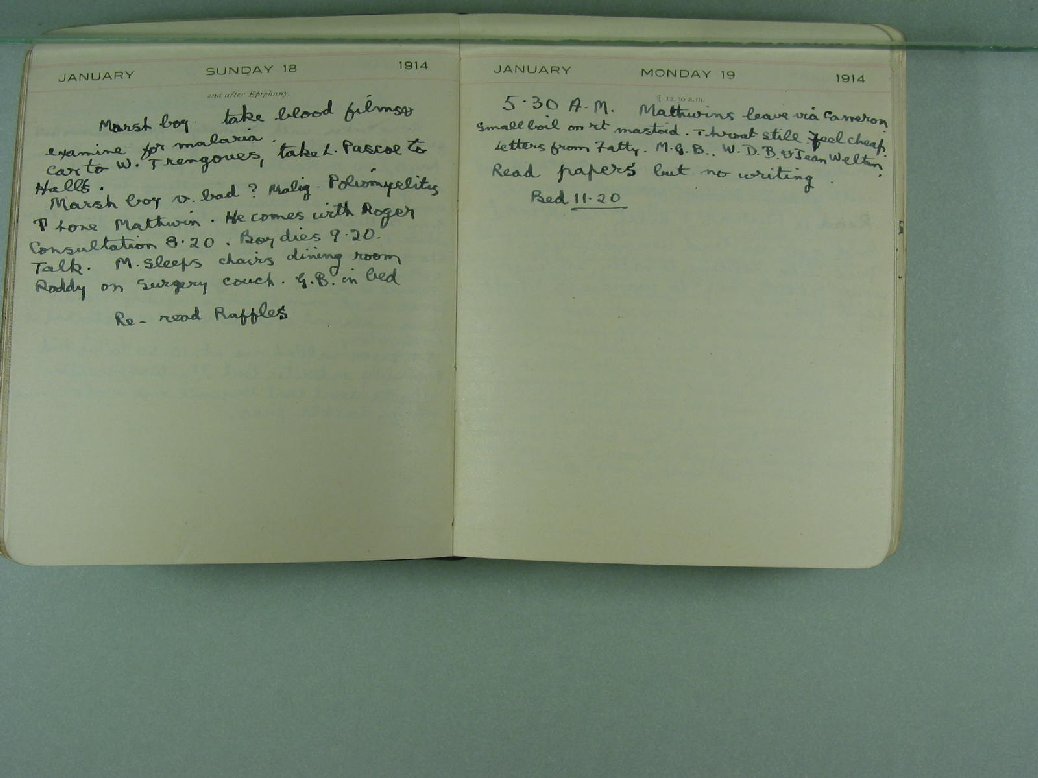 JANUARY SUNDAY 18 1914
2nd after Epiphany.
Marsh boy take blood films &
examine for malaria.
Car to W. Trengoves, take L. Pascoe to
Halls.
Marsh boy v. bad ? Malig. Poliomyelitis
Phone Mathwin. He comes with Roger
Consultation 8.20. Boy dies 9.20.
Talk. M. sleeps chairs dining room
Roddy on surgery couch. G.B. in bed
Re-read Raffles
JANUARY MONDAY 19 1914
5.30 A.M. Mathwins leave via Cameron
Small boil on rt mastoid. Throat still. Feel cheap.
Letters from Fatty. M.G.B., W.D.B. & Jean Welton.
Read papers but no writing.
Bed 11.20